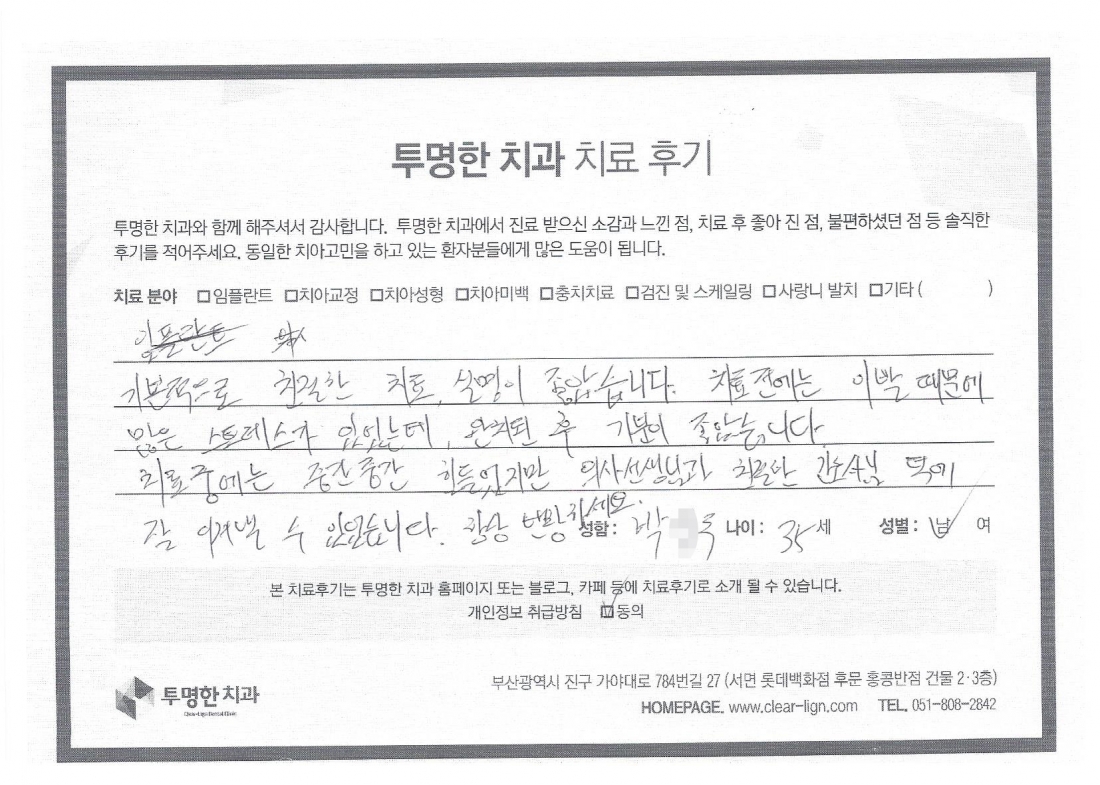 투명한 치과 치료 후기
투명한 치과와 함께 해주셔서 감사합니다. 투명한 치과에서 진료 받으신 소감과 느낀 점, 치료 후 좋아 진 점, 불편하셨던 점 등 솔직한
후기를 적어주세요. 동일한 치아고민을 하고 있는 환자분들에게 많은 도움이 됩니다.
치료 분야 □임플란트 □치아교정 □치아성형 □치아미백 □충치치료 □검진 및 스케일링 □사랑니 발치 □기타 ( )
임플란트
기본적으로 친절한 치료, 설명이 좋았습니다. 치료전에는 이빨 때문에
많은 스트레스가 있었는데, 완치된 후 기분이 좋았습니다.
치료중에는 중간중간 힘들었지만 의사선생님과 친절한 간호사님 덕에
잘 이겨낼 수 있었습니다. 항상 번창하세요.
성함 : 박 욱 나이 : 35 세 성별 : 남 여
본 치료후기는 투명한 치과 홈페이지 또는 블로그, 카페 등에 치료후기로 소개 될 수 있습니다.
개인정보 취급방침 ☑동의
투명한 치과
Clear-Lign Dental Clinic
부산광역시 진구 가야대로 784번길 27 (서면 롯데백화점 후문 홍콩반점 건물 2·3층)
HOMEPAGE. www.clear-lign.com TEL. 051-808-2842